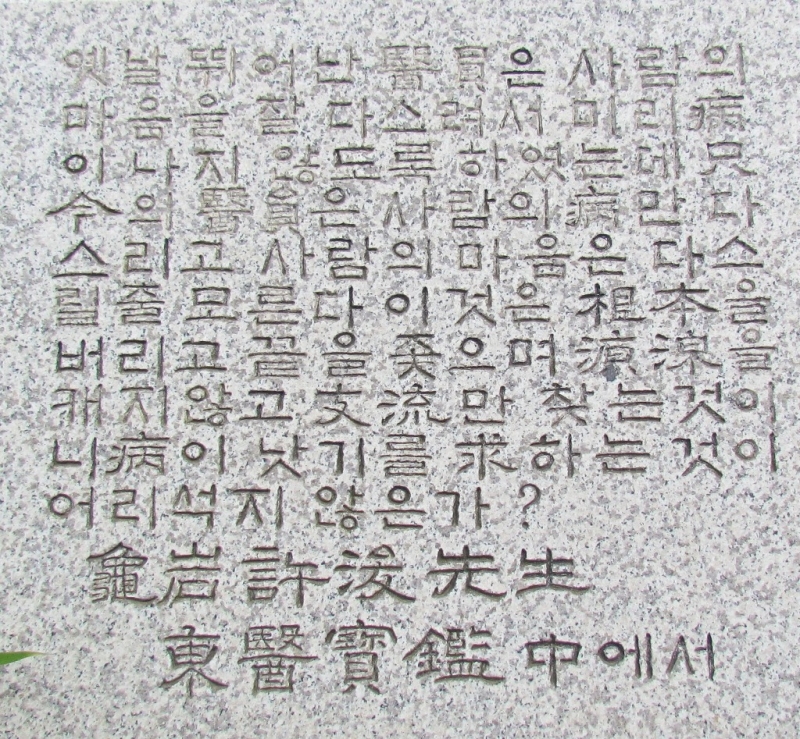 옛날 뛰어난 醫員은 사람의
마음을 잘 다스려서 미리 病
이 나지 않도록 하였는데 只
今의 醫員은 사람의 病만 다
스리고 사람의 마음은 다스
릴 줄 모른다 이것은 根本을
버리고 끝을 좇으며 源湶을
캐지 않고 支流만 찾는 것이
니 病이 낫기를 求하는 것이
어리석지 않은가 ?
龜岩 許浚先生
東醫寶鑑 中에서